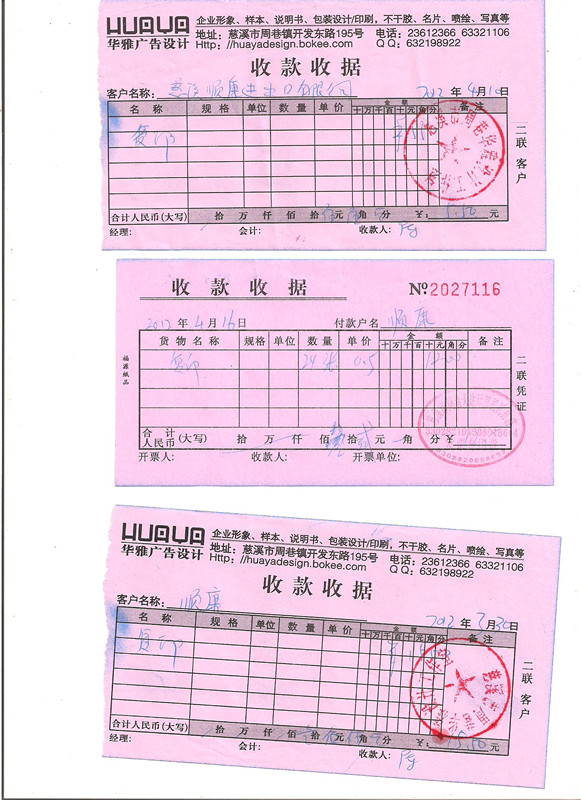 HUAYA 企业形象、样本、说明书、包装设计/印刷，不干胶、名片、喷绘、写真等
华雅广告设计 地址：慈溪市周巷镇开发东路195号 电话：23612366 63321106
Http：//huayadesign.bokee.com Q Q：632198922
收款收据
客户名称： 顺康进出口有限公司 2012年4月10日
名称 规格 单位 数量 单价 金额 备注
十万千百十元角分
复印
二联 客户
合计人民币(大写) 拾 万 仟 佰 拾 元 角 分 ¥： 5.50 元
经理： 会计： 收款人：
收款收据 №2027116
2012年4月16日 付款户名 顺康
货物名称 规格 单位 数量 单价 金额 备注
十万千百十元角分
复印 24张 0.5 12.00
福源纸品
二联凭证
合计人民币(大写) 拾 万 仟 佰 拾 元 角 分 ¥
开票人： 收款人： 开票单位：
HUAYA 企业形象、样本、说明书、包装设计/印刷，不干胶、名片、喷绘、写真等
华雅广告设计 地址：慈溪市周巷镇开发东路195号 电话：23612366 63321106
Http：//huayadesign.bokee.com Q Q：632198922
收款收据
客户名称： 顺康 2012年3月30日
名称 规格 单位 数量 单价 金额 备注
十万千百十元角分
复印
二联 客户
合计人民币(大写) 拾 万 仟 佰 拾 元 角 分 ¥： 15.50 元
经理： 会计： 收款人：